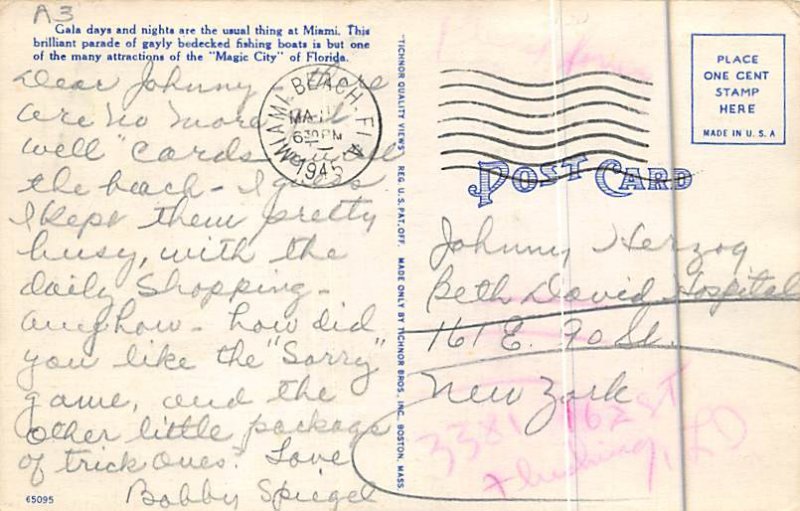 A3
Gala days and nights are the usual thing at Miami. This
brilliant parade of gayly bedecked fishing boats is but one
of the many attractions of the "Magic City" of Florida.
Dear Johnny - There
are no more "get
well" cards in all
the beach - I guess
I kept them pretty
busy, with the
daily shopping -
anyhow - how did
you like the "Sorry"
game, and the
other little package
of trick ones? Love
Bobby Spiegel
65095
MIAMI BEACH, FLA
6 30 PM
1945
"TICHNOR QUALITY VIEWS" REG. U. S. PAT. OFF. MADE ONLY BY TICHNOR BROS., INC., BOSTON, MASS.
PLACE
ONE CENT
STAMP
HERE
MADE IN U. S. A
POST CARD
Johnny Herzog
Beth David Hospital
161 E. 90 St.
New York
3381 162 ST
Flushing, L.I.